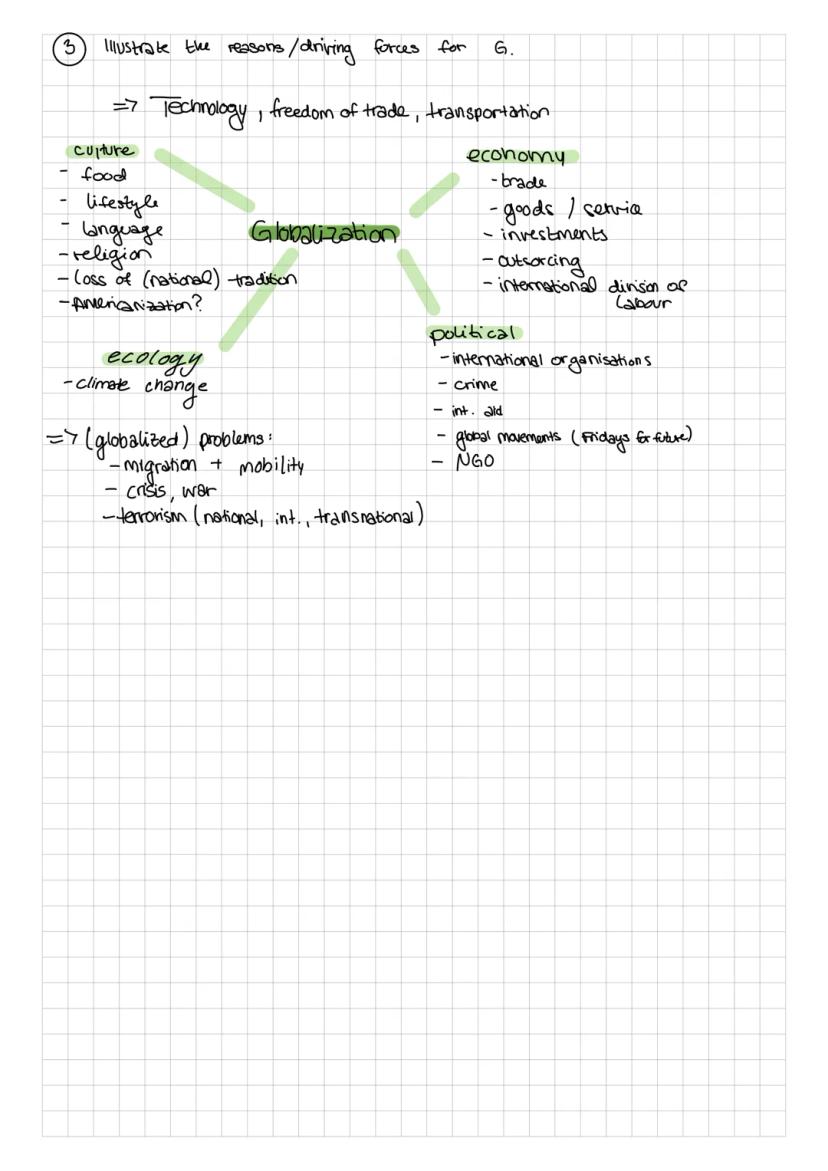 3 Illustrate the reasons/driving forces for G.
=> Technology, freedom of trade, transportation
culture
- food
- lifestyle
- language
- religion
- loss of (national) tradition
- Americanization?
Globalization
economy
- trade
- goods / service
- investments
- outsorcing
- international divison of
labour
ecology
- climate change
political
- international organisations
- crime
- int. aid
- global movements (Fridays for future)
- NGO
=> (globalized) problems:
- migration + mobility
- crisis, war
- terrorism (national, int., transnational)